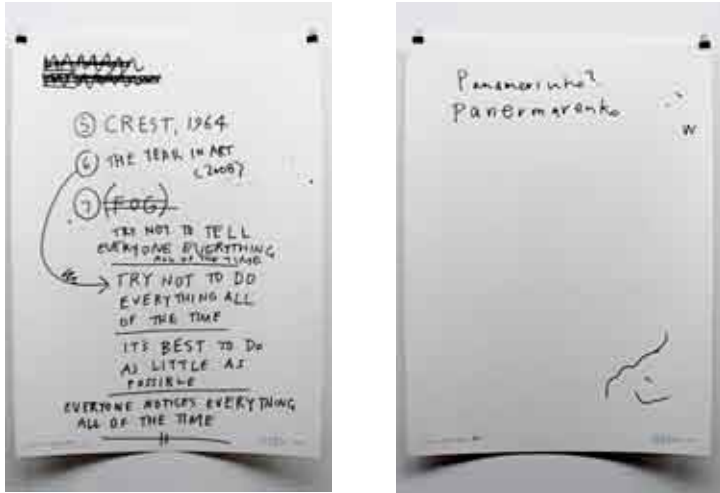 ⑤ CREST, 1964
⑥ THE YEAR IN ART
(2008)
⑦ (FOG)
TRY NOT TO TELL
EVERYONE EVERYTHING
ALL OF THE TIME
TRY NOT TO DO
EVERYTHING ALL
OF THE TIME
IT'S BEST TO DO
AS LITTLE AS
POSSIBLE
EVERYONE NOTICES EVERYTHING
ALL OF THE TIME
Panamarinko?
Panermarenko
W